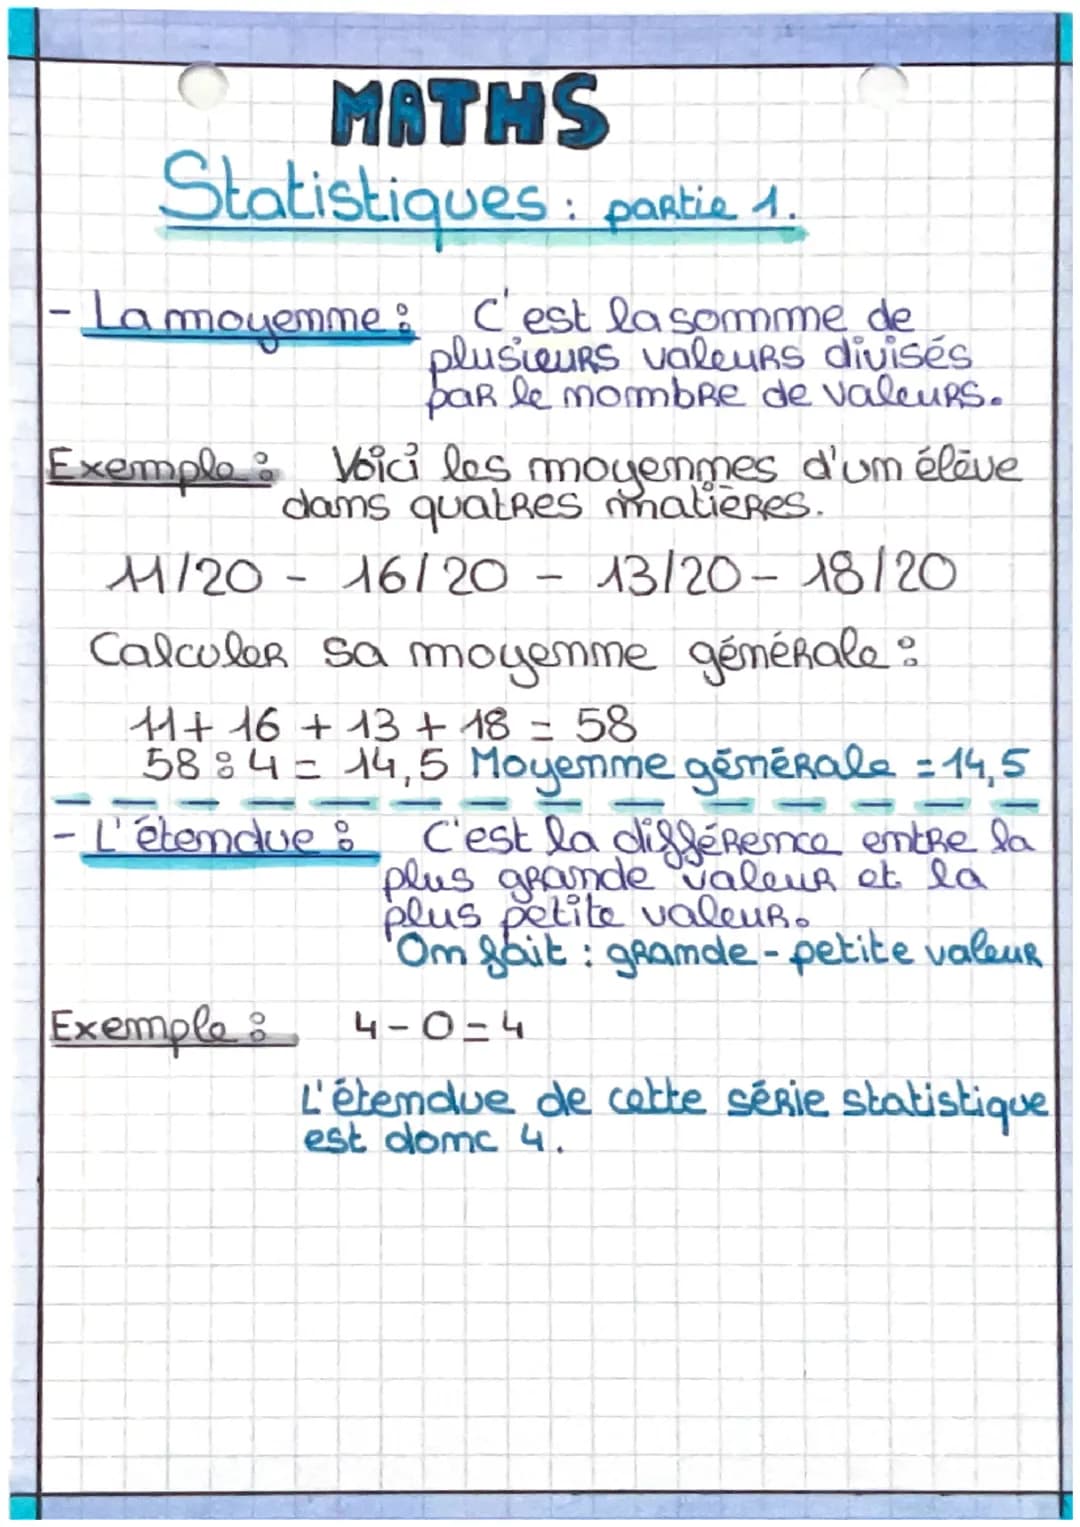 MATHS
Statistiques : partie 1.
- La moyenne : C'est la somme de
plusieurs valeurs divisés
par le nombre de valeurs.
Exemple : Voici les moyennes d'un élève
dans quatres matières.
11/20 - 16/20 - 13/20 - 18/20
Calculer sa moyenne générale :
11 + 16 + 13 + 18 = 58
58 : 4 = 14,5 Moyenne générale = 14,5
- L'étendue : C'est la différence entre la
plus grande valeur et la
plus petite valeur.
On fait : grande - petite valeur
Exemple : 4 - 0 = 4
L'étendue de cette série statistique
est donc 4.